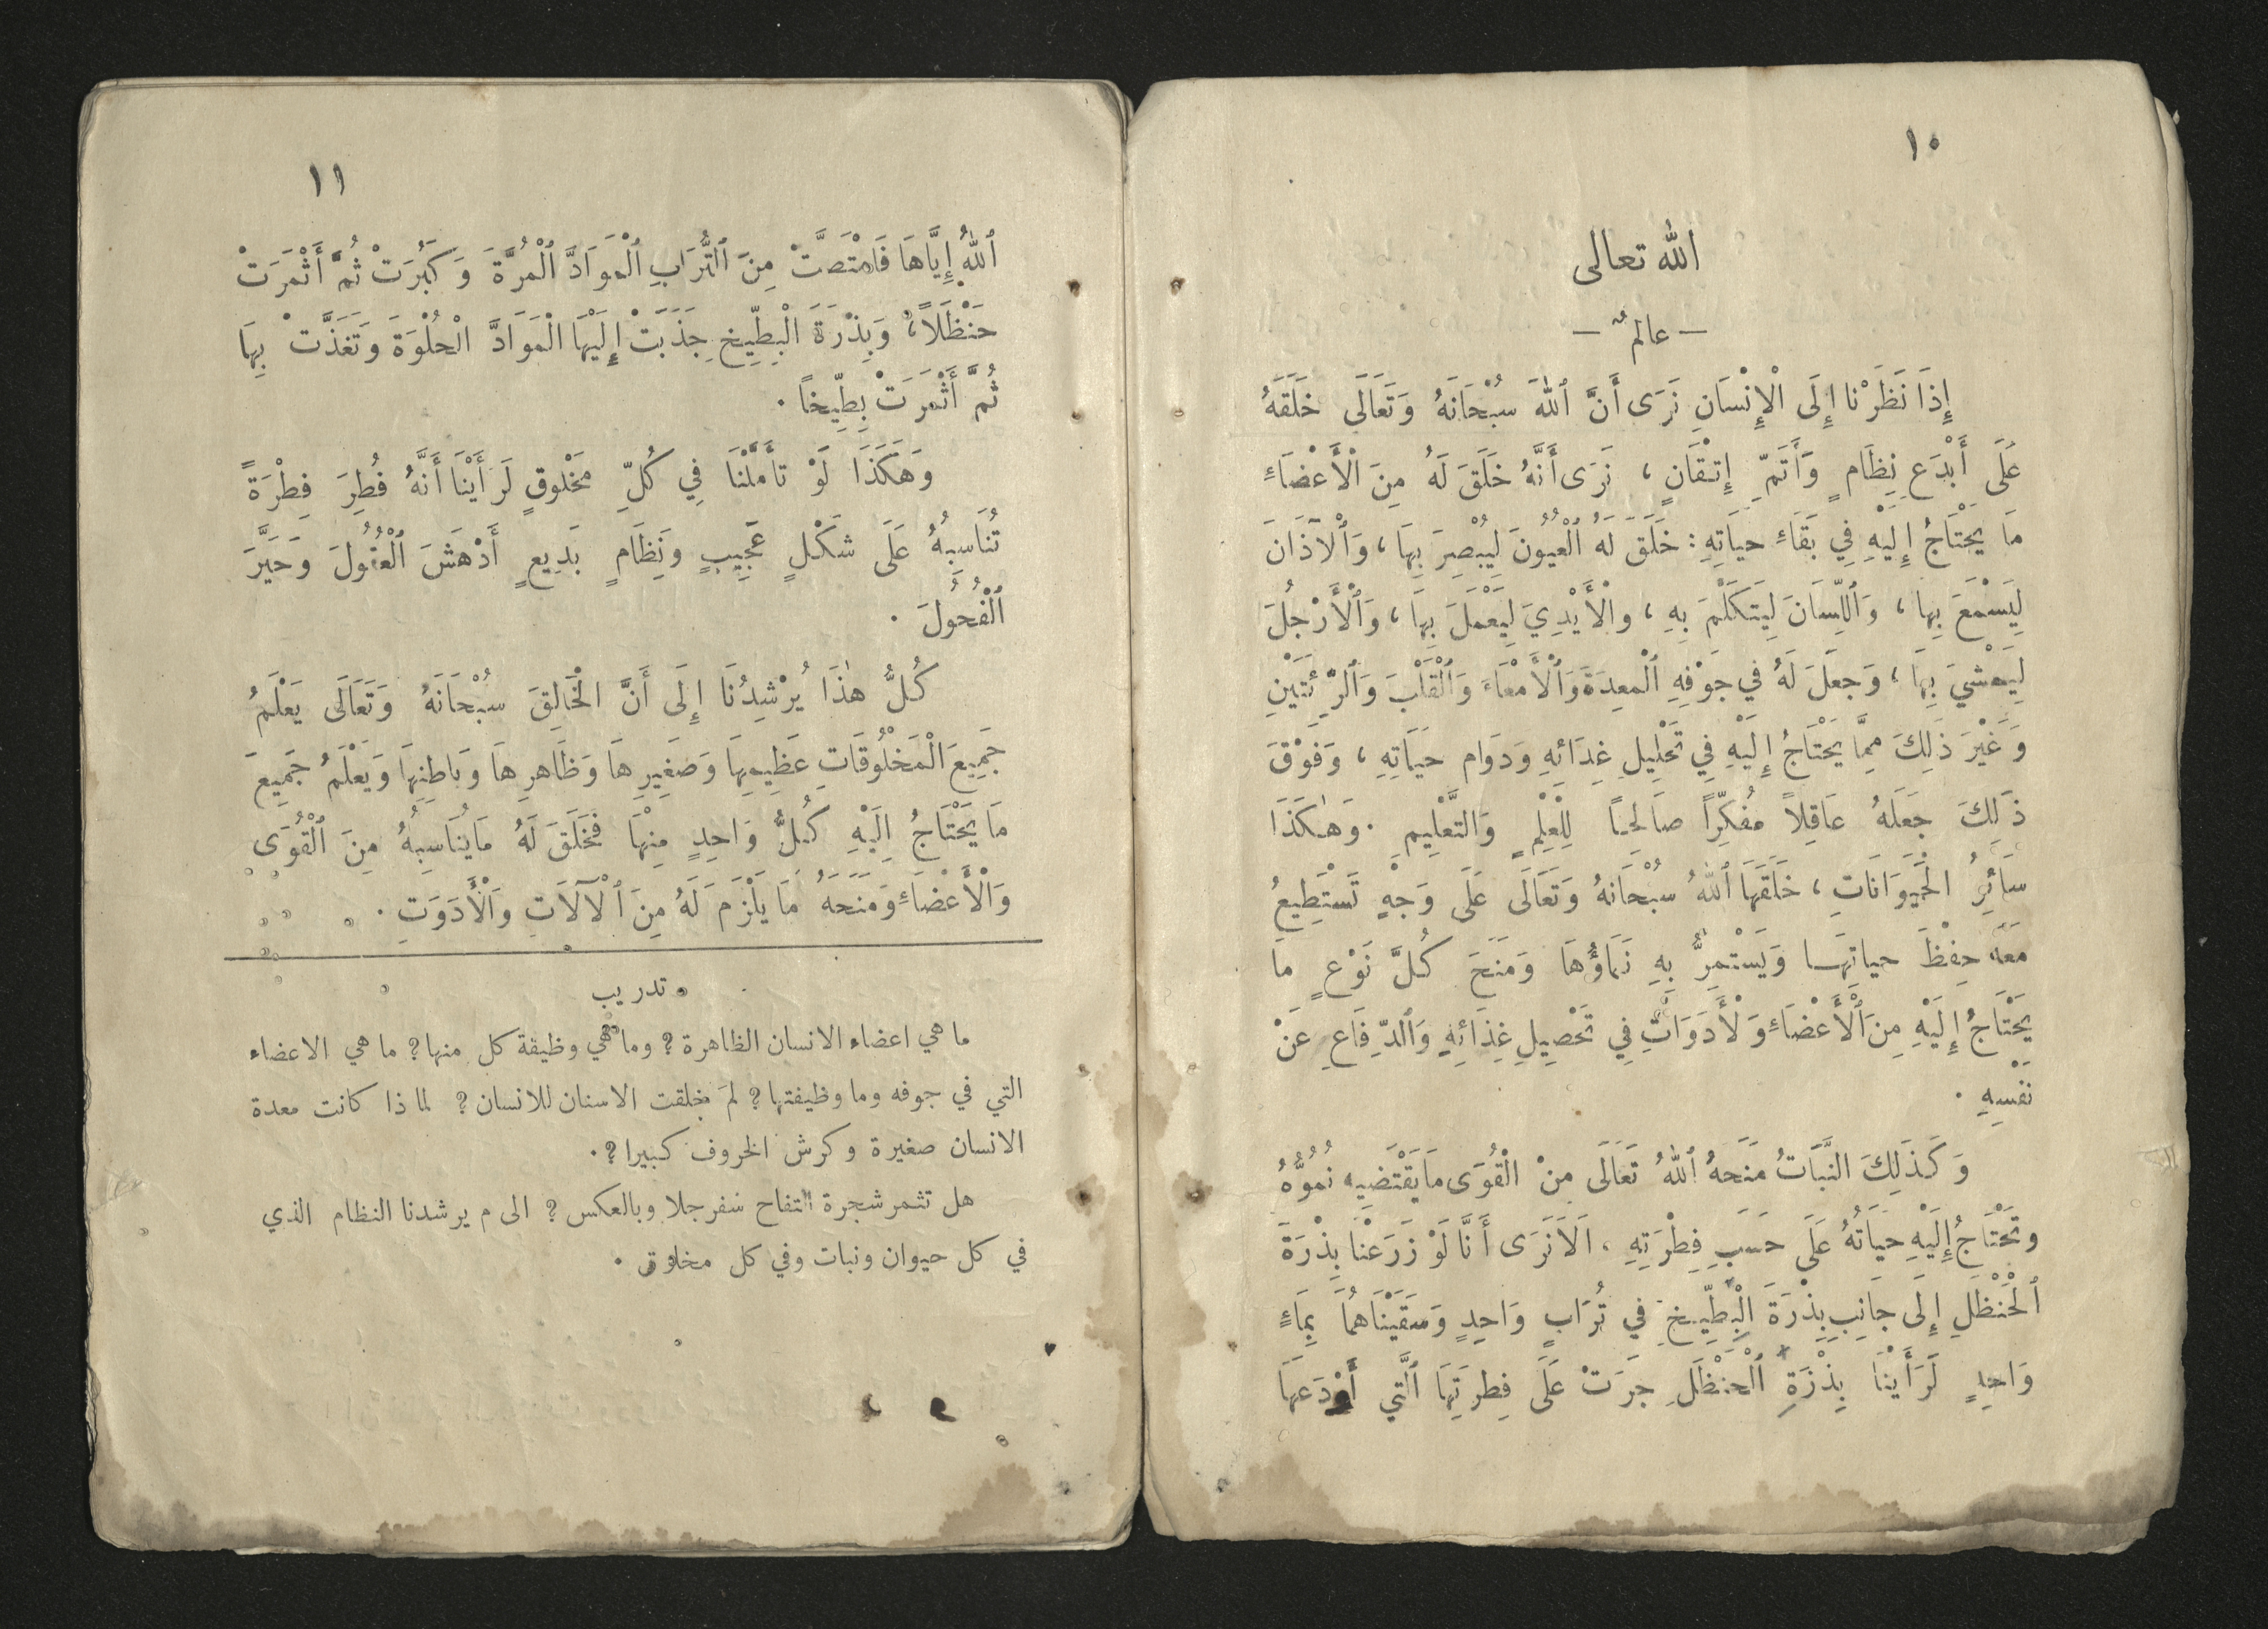 ١٠
الله تعالى
— عالمٌ —
إِذَا نَظَرْنا إِلَى الْإِنْسَانِ نَرَى أَنَّ ٱللهَ سُبْحَانَهُ وَتَعَالَى خَلَقَهُ
عَلَى أَبْدَعِ نِظَامٍ وَأَتَمِّ إِتقَانٍ ، نَرَى أَنَّهُ خَلَقَ لَهُ مِنَ الْأَعْضَاءِ
مَا يَحْتَاجُ إِلَيْهِ فِي بَقَاءِ حيَاتِهِ : خَلَقَ لَهُ ٱلْعُيُونَ لِيُبْصِرَ بِهَا ، وَٱلْآذَانَ
لِيَسْمَعَ بِها ، وَٱللِّسَانَ لِيَتَكَلَّمَ بِهِ ، والْأَيْدِيَ لِيَعْمَلَ بِهَا ، وَٱلْأَرْجُلَ
لِيَمْشيَ بِهَا ، وَجعَلَ لَهُ في جَوْفِهِ ٱلْمعِدَةَ وَٱلْأَمْعَاءَ وَٱلْقَلْبَ وَٱلرِّئَتَيْنِ
وَغَيْرَ ذٰلِكَ مِمَّا يَحْتَاجُ إِلَيْهِ فِي تَحْلِيلِ غِذَائهِ وَدَوَام حيَاتِهِ ، وَفَوْقَ
ذٰلِكَ جَعَلَهُ عَاقِلاً مُفكِّرًا صَالِحًا لِلْعِلْمِ وَالتَّعْلِيمِ . وَهٰكَذَا
سَائِرُ الْحَيَوَانَاتِ ، خَلَقَهَا ٱللهُ سُبْحَانَهُ وَتَعَالَى عَلَى وَجْهٍ تَسْتَطِيعُ
مَعَهُ حِفْظَ حياتِهَا وَيَسْتَمِرُّ بِهِ نَمَاؤُهَا وَمَنَحَ كُلَّ نَوْعٍ مَا
يَحْتَاجُ إِلَيْهِ مِنَ ٱلْأَعْضَاءِ وَلْأَدَوَاتِ فِي تَحْصِيلِ غِذَائِهِ وَٱلدِّفَاعِ عَنْ
نَفْسِهِ .
وَكَذٰلِكَ النَّبَاتُ مَنَحهُ ٱللهُ تَعَالَى مِنْ الْقُوَى مَا يَقْتَضِيهِ نُمُوُّهُ
وتَحْتَاجُ إِلَيْهِ حيَاتُهُ عَلَى حَسَبِ فِطْرَتِهِ . اَلَا نَرَى أَنَّا لَوْ زَرَعْنا بِذْرَةَ
ٱلْحَنْظَلِ إِلَى جَانِبِ بِذْرَةَ الْبِطِّيخِ فِي تُرَابٍ وَاحِدٍ وَسَقَيْنَاهُمَا بِمَاءٍ
وَاحِدٍ لَرَأَيْنَا بِذْرَةَ ٱلْحَنْظَلِ جرَتْ عَلَى فِطرتِهَا ٱلَّتِي أَوْدَعهَا
١١
ٱللهُ إِيَّاهَا فَامْتَصَّتْ مِنَ ٱلتُّرَابِ ٱلْمَوَادَّ ٱلْمُرَّةَ وَكَبُرَتْ ثُمَّ أَثْمَرَتْ
حَنْظَلاً ، وَبِذْرَةَ الْبِطِّيخِ جَذَبَتْ إِلَيْهَا الْمَوَادَّ الْحُلْوَةَ وَتَغَذَّتْ بِهَا
ثُمَّ أَثْمَرَتْ بِطِّيخاً .
وَهَكَذَا لَوْ تأَمَّلْنَا فِي كُلِّ مَخْلُوقٍ لَرَأَيْنَا أَنَّهُ فُطِرَ فِطْرَةً
تُنَاسِبُهُ عَلَى شَكْلٍ عَجِيبٍ ونِظَامٍ بَدِيعٍ أَدْهَشَ ٱلْعُقُولَ وَحَيَّرَ
ٱلْفُحُولَ .
كُلُّ هٰذَا يُرْشِدُنَا إِلَى أَنَّ الْخَالِقَ سُبْحَانَهُ وَتَعَالَى يَعْلَمُ
جَمِيعَ الْمَخْلُوقَاتِ عَظِيمِهَا وَصَغِيرِهَا وَظَاهرِهَا وَبَاطِنِهَا وَيَعْلَمُ جَمِيعَ
مَا يَحْتَاجُ إِلَيْهِ كُلُّ وَاحِدٍ مِنْهَا فَخَلَقَ لَهُ مَا يُنَاسِبُهُ مِنَ ٱلْقُوَى
وَالْأَعْضَاءِ وَمَنَحَهُ مَا يَلْزَمَ لَهُ مِنَ ٱلْآلَاتِ وَالْأَدَوَتِ .
تدريب
ما هي اعضاء الانسان الظاهرة ؟ وما هي وظيقة كل منها ؟ ما هي الاعضاء
التي في جوفه وما وظيفتها ؟ لمَ خلقت الاسنان للانسان ؟ لماذا كانت معدة
الانسان صغيرة وكرش الخروف كبيرا ؟ .
هل تثمر شجرة التفاح سفرجلا وبالعكس ؟ الى م يرشدنا النظام الذي
في كل حيوان ونبات وفي كل مخلوق .